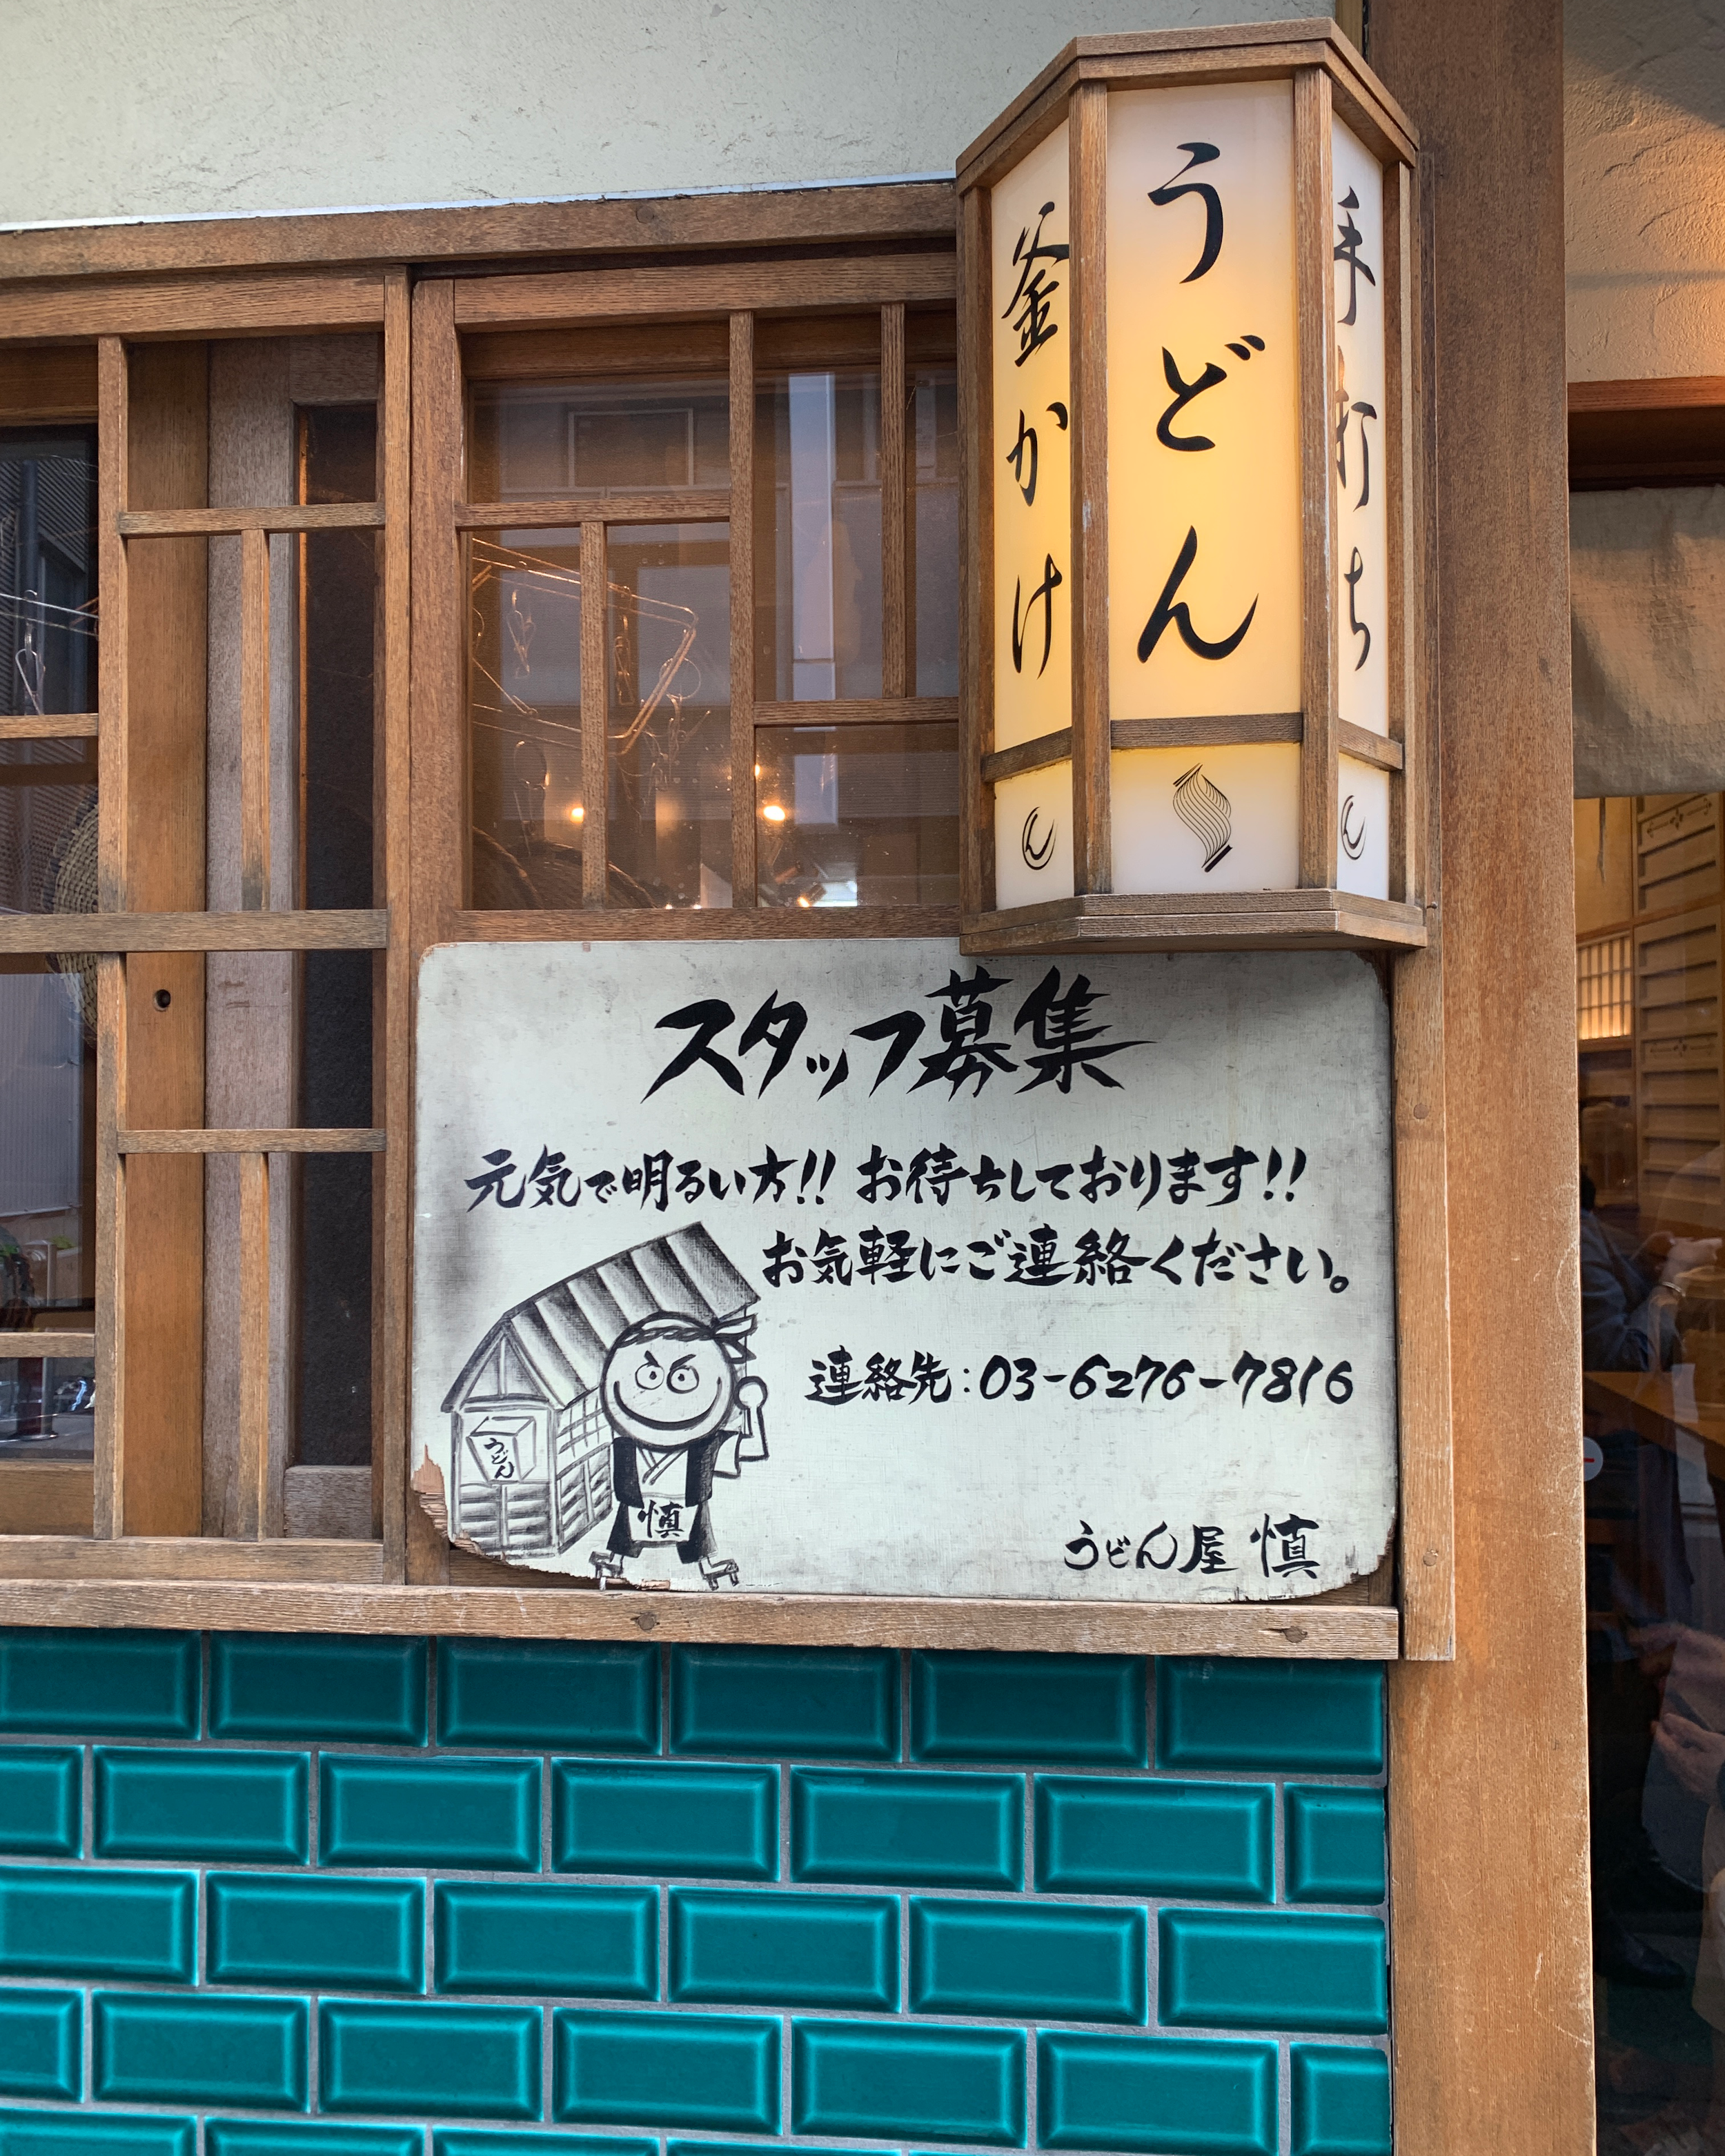 うどん
釜かけ
手打ち
スタッフ募集
元気で明るい方!! お待ちしております!!
お気軽にご連絡ください。
連絡先:03-6276-7816
うどん
慎
うどん屋 慎